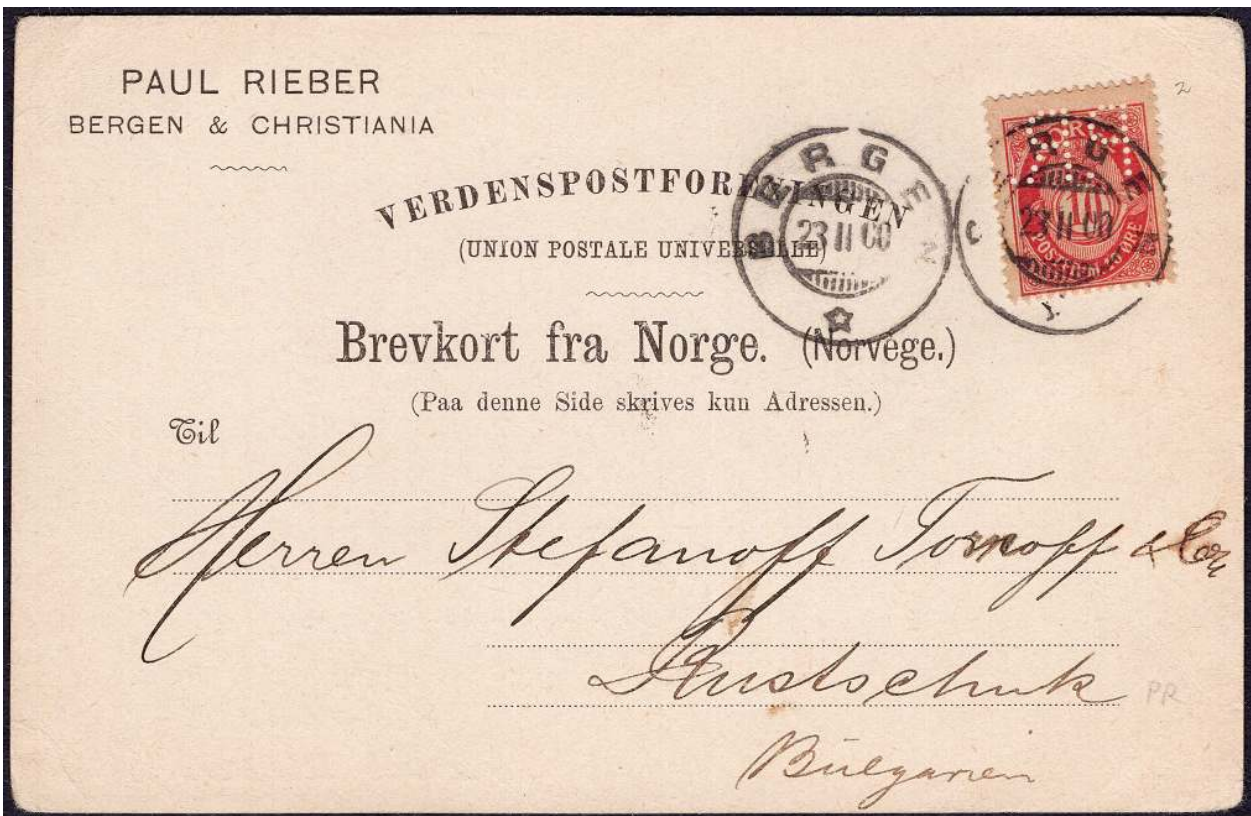 PAUL RIEBER
BERGEN & CHRISTIANIA
2
VERDENSPOSTFORENINGEN
(UNION POSTALE UNIVERSELLE)
BERGEN
23 II 00
NORGE
10
POSTFRIM. ØRE
BERGEN
23 II 00
Brevkort fra Norge. (Norvége.)
(Paa denne Side skrives kun Adressen.)
Til
Herren Stefanoff &
Rustschuk
PR
Bulgarien